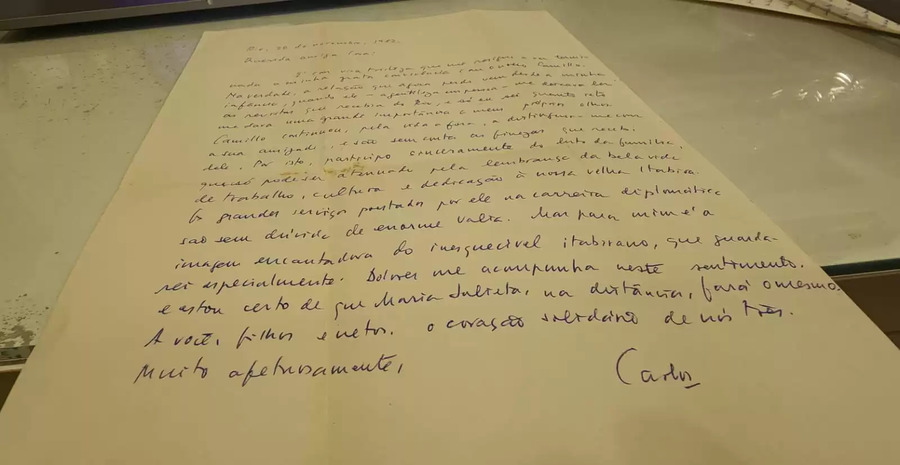 Rio, de novembro, 1982.
Querida amiga
É com que me a seu
minha grata convivência com o Camillo.
Na verdade, a relação que agora perde vem desde a minha
infância, quando ele me
as revistas que recebia do Rio, e só eu sei quanto isto
me dava uma grande importância a meus próprios olhos.
Camillo continuou, pela vida a fora, a distinguir-me com
a sua amizade, e são sem conta as finezas que recebi
dele. Por isto, participo sinceramente do luto da família,
que só poderá ser atenuado pela lembrança da bela vida
de trabalho, cultura e dedicação à nossa velha Itabira.
Os grandes serviços prestados por ele na carreira diplomática
são sem dúvida de enorme valia. Mas para mim é a
imagem encantadora do inesquecível itabirano, que guarda-
rei especialmente. Dolores me acompanha neste sentimento.
e estou certo de que Maria Julieta, na distância, fará o mesmo.
A você, filhos e netos, o coração solidário de nós três.
Muito afetuosamente,
Carlos